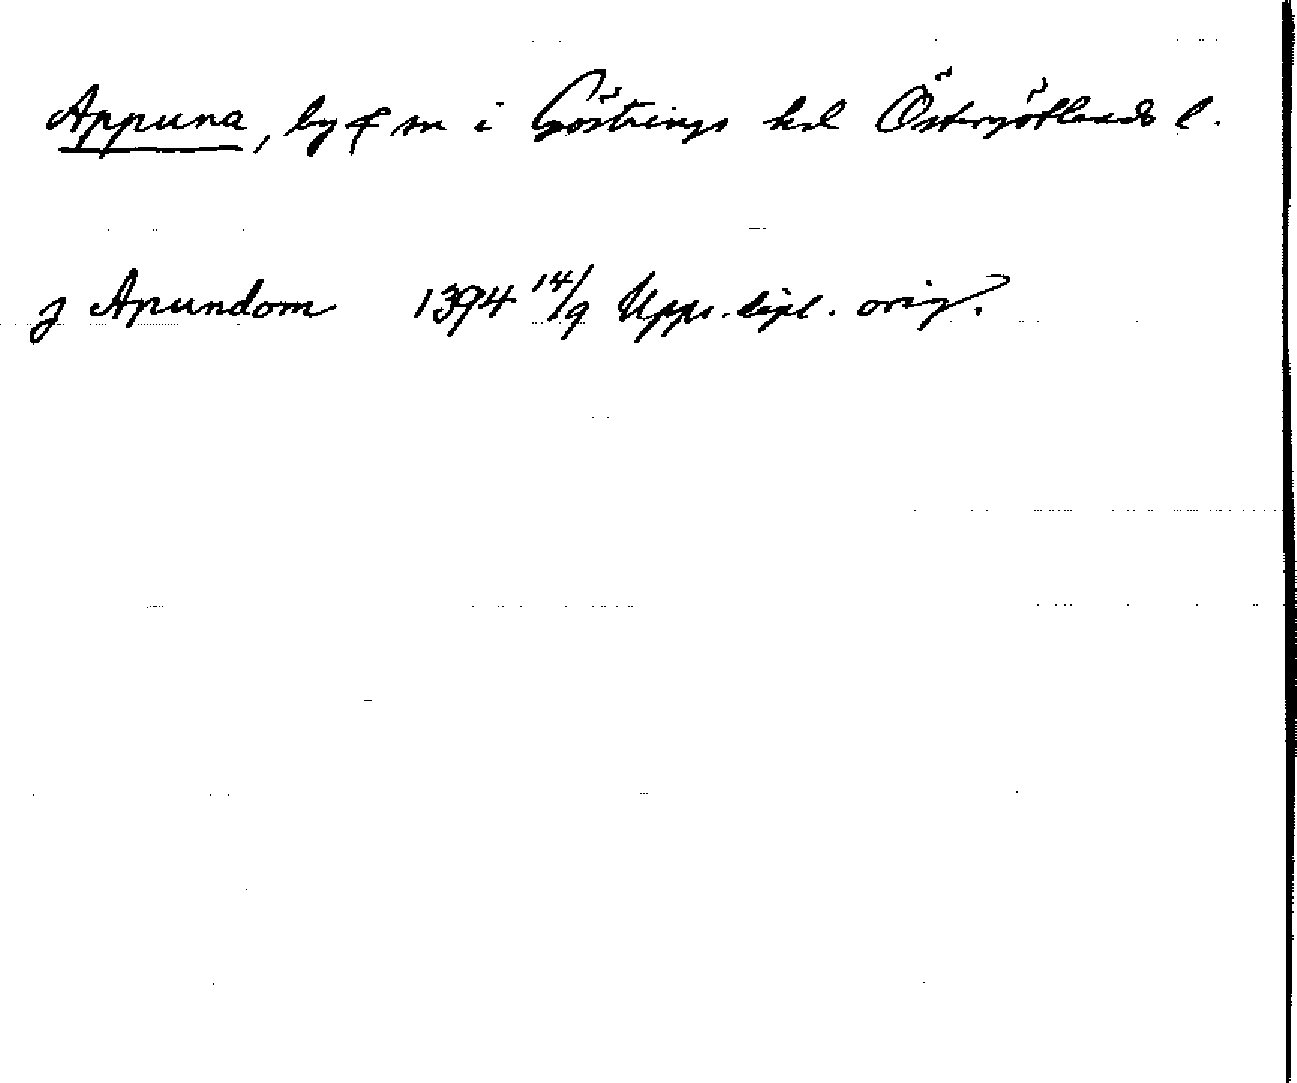 Appuna, by & sn i Göstrings hd Östergötlands l.
j Apundom 1394 14/9 Upps. dipl. orig.